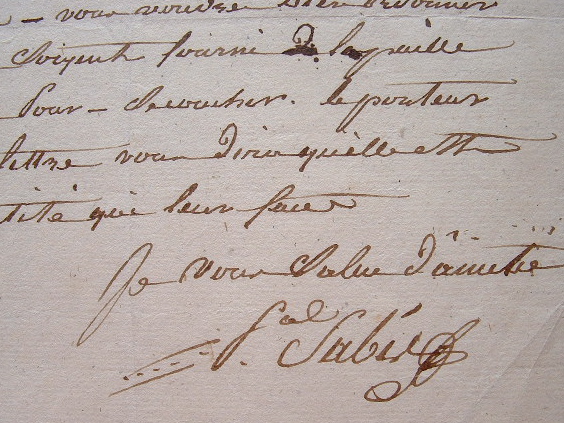 - vous voudré bien ordonner
Soyent fourni de la paille
Pour - Se coucher. le porteur
lettre vous dira quelle est
tité qui leur faut
Je vous Salue d'amitié